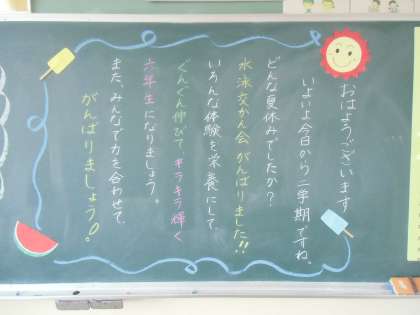 おはようございます
いよいよ今日から二学期ですね。
どんな夏休みでしたか?
水泳交かん会 がんばりました!!
いろんな体験を栄養にして、
ぐんぐん伸びて、キラキラ輝く
六年生になりましょう。
また、みんなで力を合わせて、
がんばりましょう。